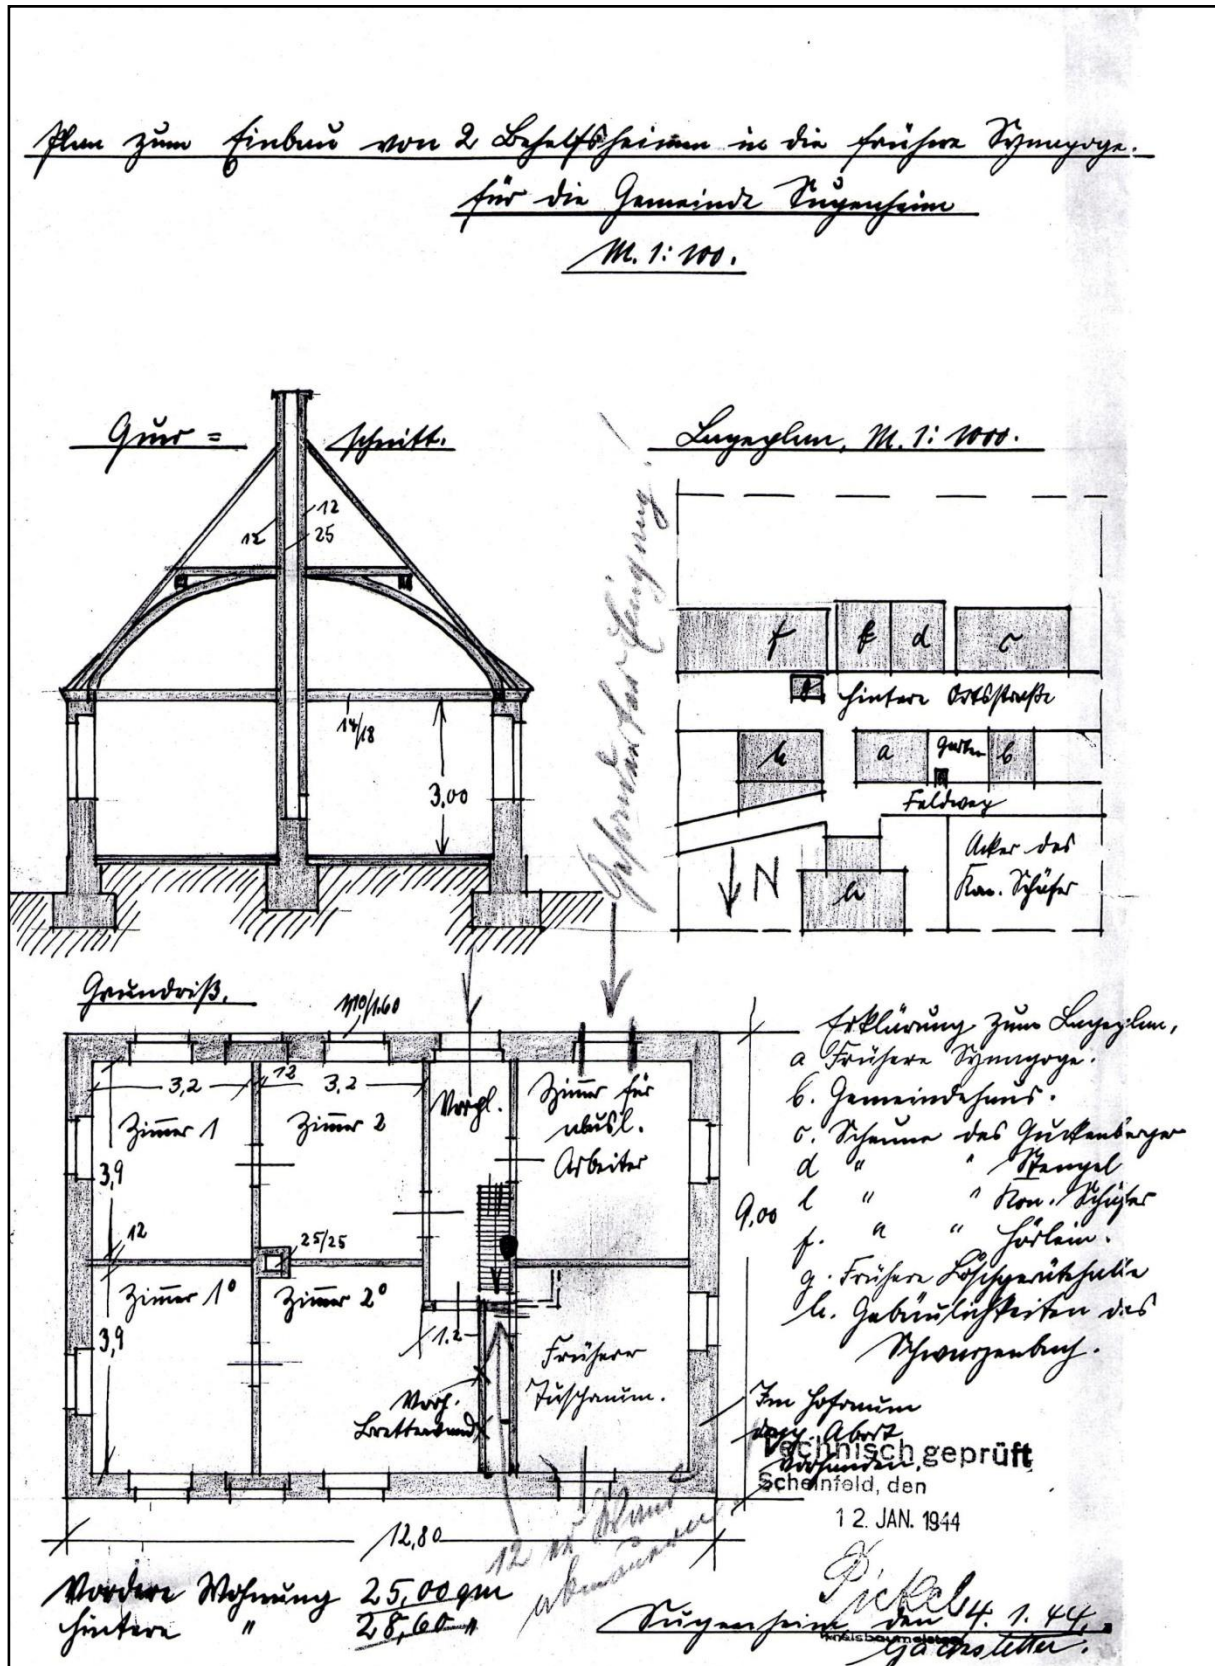 Plan zum Einbau von 2 Behelfsheimen in die frühere Synagoge.
für die Gemeinde Sugenheim
M. 1:100.
Quer = schnitt.
12
12
25
14/18
3,00
Lageplan, M. 1:1000.
f
e
d
c
g
hintere Ortsstraße
h
a
Garten
b
Feldweg
Acker des
Kon. Schäfer
h
N
Grundriß.
1,10/1,60
3,2
12
3,2
Zimmer 1
Zimmer 2
Vorpl.
Zimmer für
ausl.
Arbeiter
3,9
12
25/25
9,00
Zimmer 1a
Zimmer 2a
3,9
1.2
Vorh.
Bretterwand
Früherer
12,80
12 cm Wand
Erklärung zum Lageplan,
a Frühere Synagoge.
b. Gemeindehaus.
c. Scheune des Guckenberger
d " " Stengel
e " " Kon. Schäfer
f. " " Hörlein.
g. Frühere Löschgerätehalle
h. Gebäulichkeiten des
Schwarzenbach.
Im Hofraum
Abort
vorhanden.
Technisch geprüft
Scheinfeld, den
12. JAN. 1944
Pickel
Kreisbaumeister
Vordere Wohnung 25,00 qm
hintere " 28,60 "
Sugenheim, den 4. 1. 44.